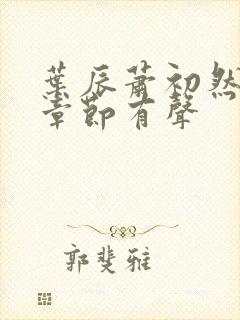 葉辰蕭初然
章節有聲
郭斐雅